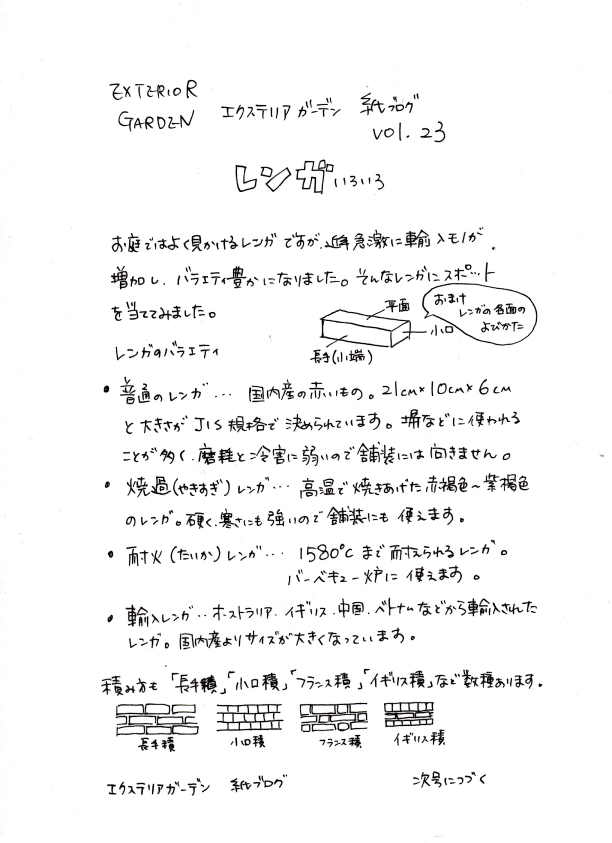 EXTERIOR
GARDEN
エクステリア ガーデン 紙ブログ
vol. 23
レンガ いろいろ
お庭ではよく見かけるレンガ ですが、近年急激に輸入モノが
増加し、バラエティ豊かになりました。そんなレンガにスポット
を当ててみました。
平面
小口
長手(小端)
おまけ
レンガの各面の
よびかた
レンガのバラエティ
• 普通のレンガ… 国内産の赤いもの。21cm×10cm×6cm
と大きさがJIS規格で決められています。塀などに使われる
ことが多く、磨耗と冷害に弱いので舗装には向きません。
• 焼過(やきすぎ)レンガ… 高温で焼きあげた赤褐色～紫褐色
のレンガ。硬く、寒さにも強いので舗装にも使えます。
• 耐火(たいか)レンガ… 1580℃まで耐えられるレンガ。
バーベキュー炉に使えます。
• 輸入レンガ‥オーストラリア、イギリス、中国、ベトナムなどから輸入された
レンガ。国内産よりサイズが大きくなっています。
積み方も「長手積」「小口積」「フランス積」「イギリス積」など数種あります。
長手積
小口積
フランス積
イギリス積
エクステリアガーデン 紙ブログ
次号につづく